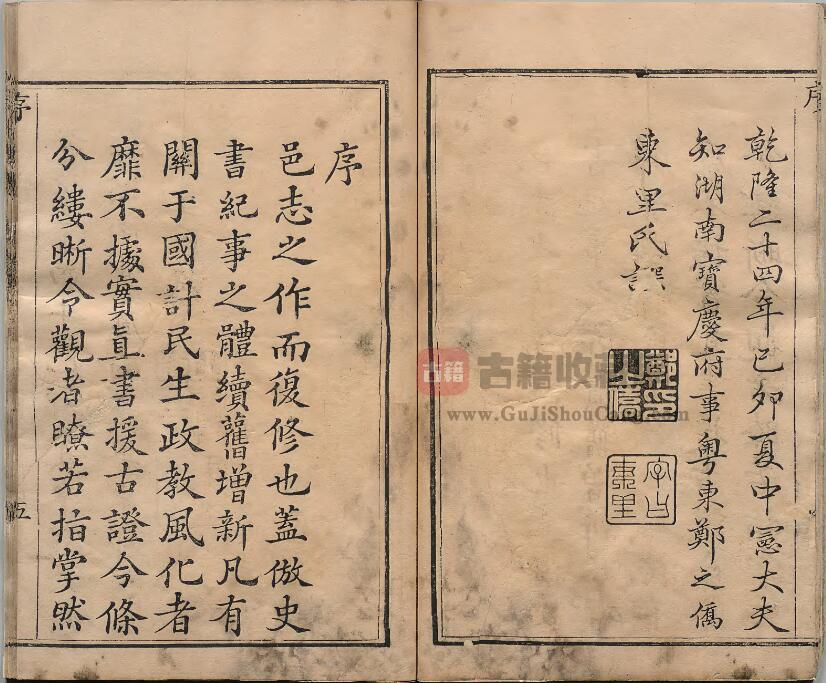 乾隆二十四年己卯夏中憲大夫
知湖南寶慶府事粵東鄭之僑
東里氏譔
鄭印之僑
字曰東里
序
邑志之作而復修也蓋倣史
書紀事之體續舊增新凡有
關于國計民生政教風化者
靡不據實直書援古證今條
分縷晰令觀者瞭若指掌然
序
五
古籍
古籍收藏
www.GuJiShouCang.com